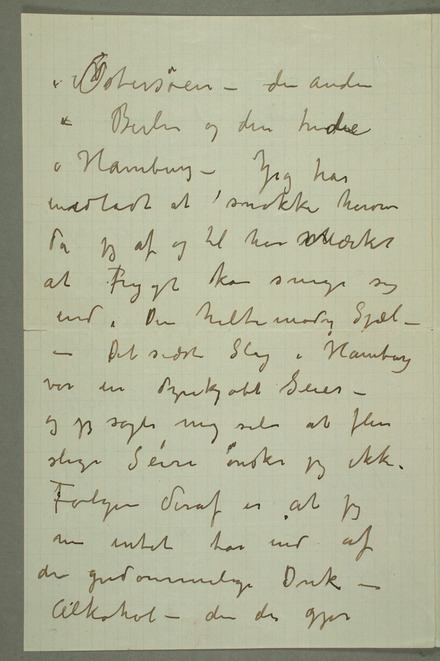 i Østersøen – den anden
i Berlin og den tredie
i Hamburg – Jeg har
undladt at snakke herom
da jeg af og til har mærket
at Frygt kan snige sig
ind i Din heltemodig Sjæl –
– Det sidste Slag i Hamburg
var en dyrekjøbt Seier –
og jeg sagde mig selv at flere
slige Seire ønsker jeg ikke.
Følgen deraf er at jeg
nu intet har ind af
den guddommelige Drik –
Alkohol – den der gjør